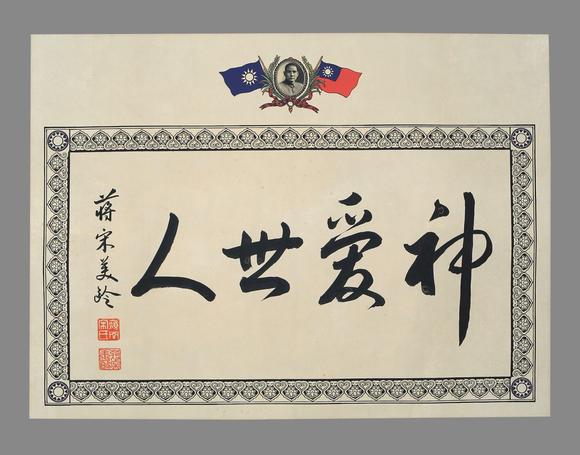 神爱世人
蔣宋美齡